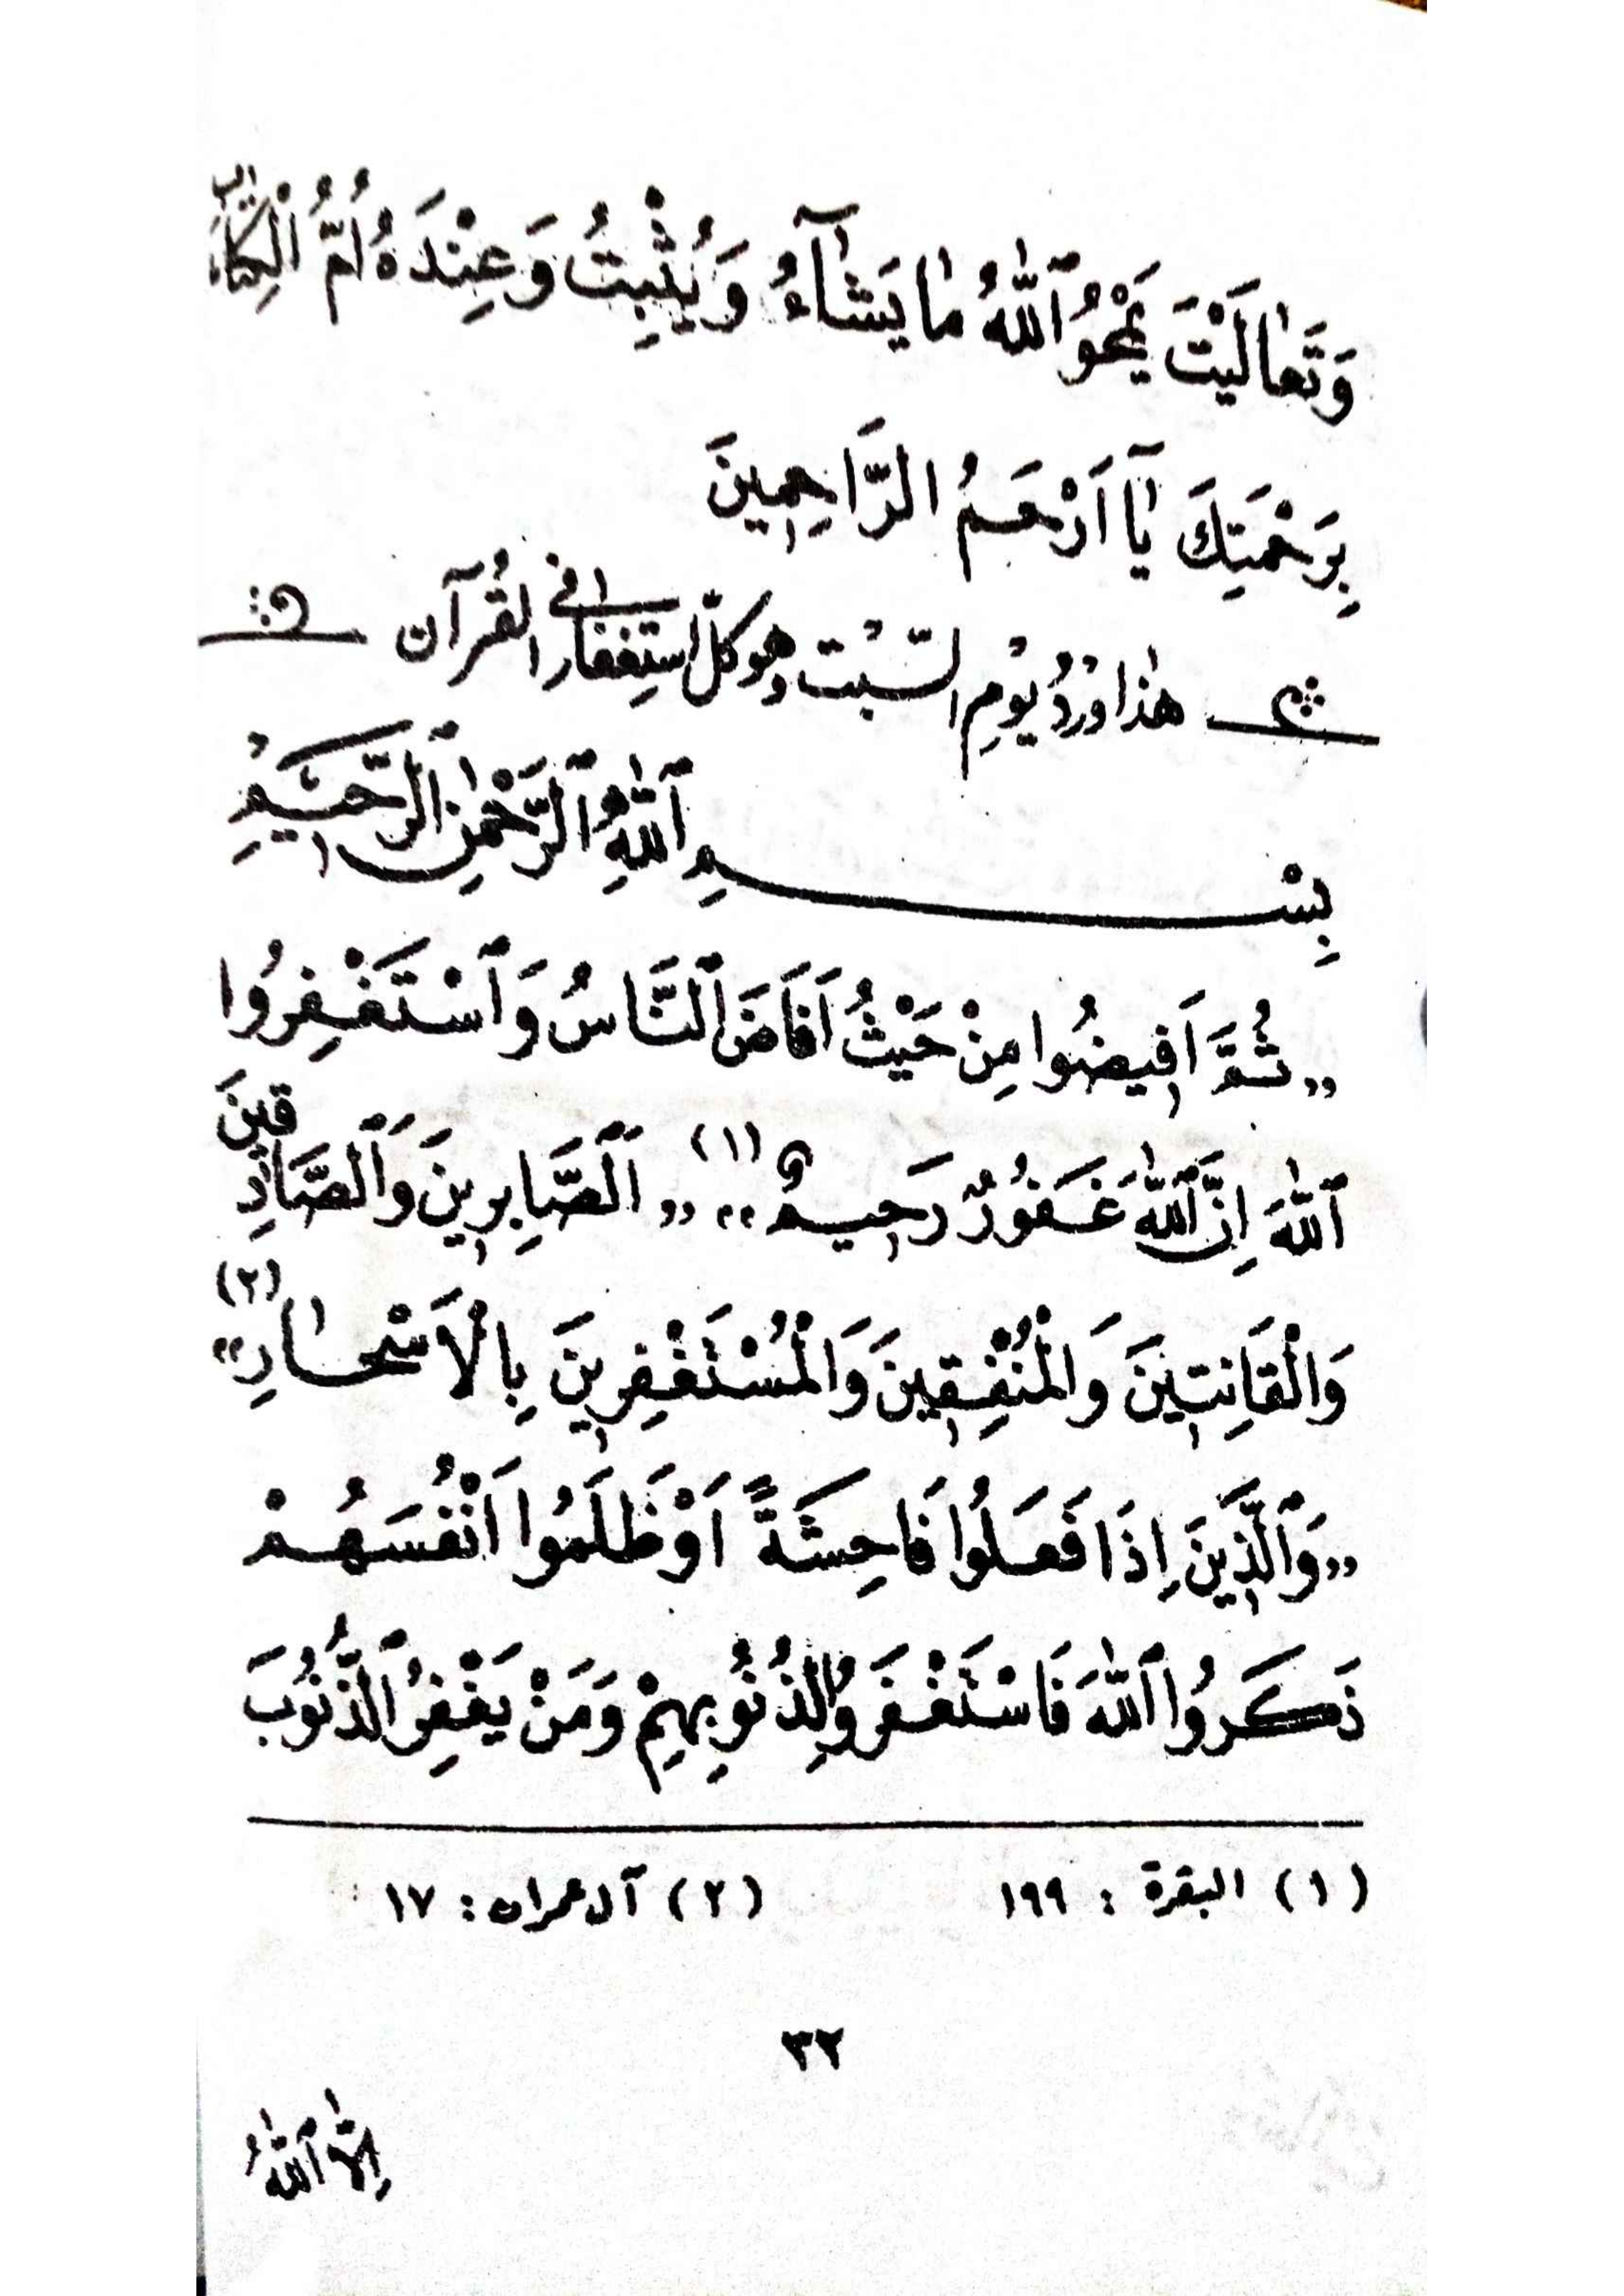 وَتَعَالَيْتَ يَمْحُو ٱللّٰهُ مَا يَشَآءُ وَيُثْبِتُ وَعِنْدَهُ اُمُّ الْكِتَابِ
بِرَحْمَتِكَ يَآ اَرْحَمُ الرَّاحِمِينَ
هٰذَا وِرْدُ يَوْمِ السَّبْت وهو كلّ استِغفار في القُرآن
بِسْمِ ٱللّٰهِ ٱلرَّحْمٰنِ ٱلرَّحِيمِ
„ثُمَّ اَفِيضُوا مِنْ حَيْثُ اَفَاضَ ٱلنَّاسُ وَٱسْتَغْفِرُوا
ٱللّٰهَ اِنَّ ٱللّٰهَ غَفُورٌ رَحِيمٌ“ (١) „ٱلصَّابِرِينَ وَٱلصَّادِقِينَ
وَالْقَانِتِينَ وَالْمُنْفِقِينَ وَالْمُسْتَغْفِرِينَ بِالْاَسْحَارِ“ (٢)
„وَٱلَّذِينَ اِذَا فَعَلُوا فَاحِشَةً اَوْ ظَلَمُوا اَنْفُسَهُمْ
ذَكَرُوا ٱللّٰهَ فَاسْتَغْفَرُوا لِذُنُوبِهِمْ وَمَنْ يَغْفِرُ الذُّنُوبَ
(١) البقرة : ١٩٩ (٢) آل عمران : ١٧
٣٢
اِلَّا ٱللّٰهُ